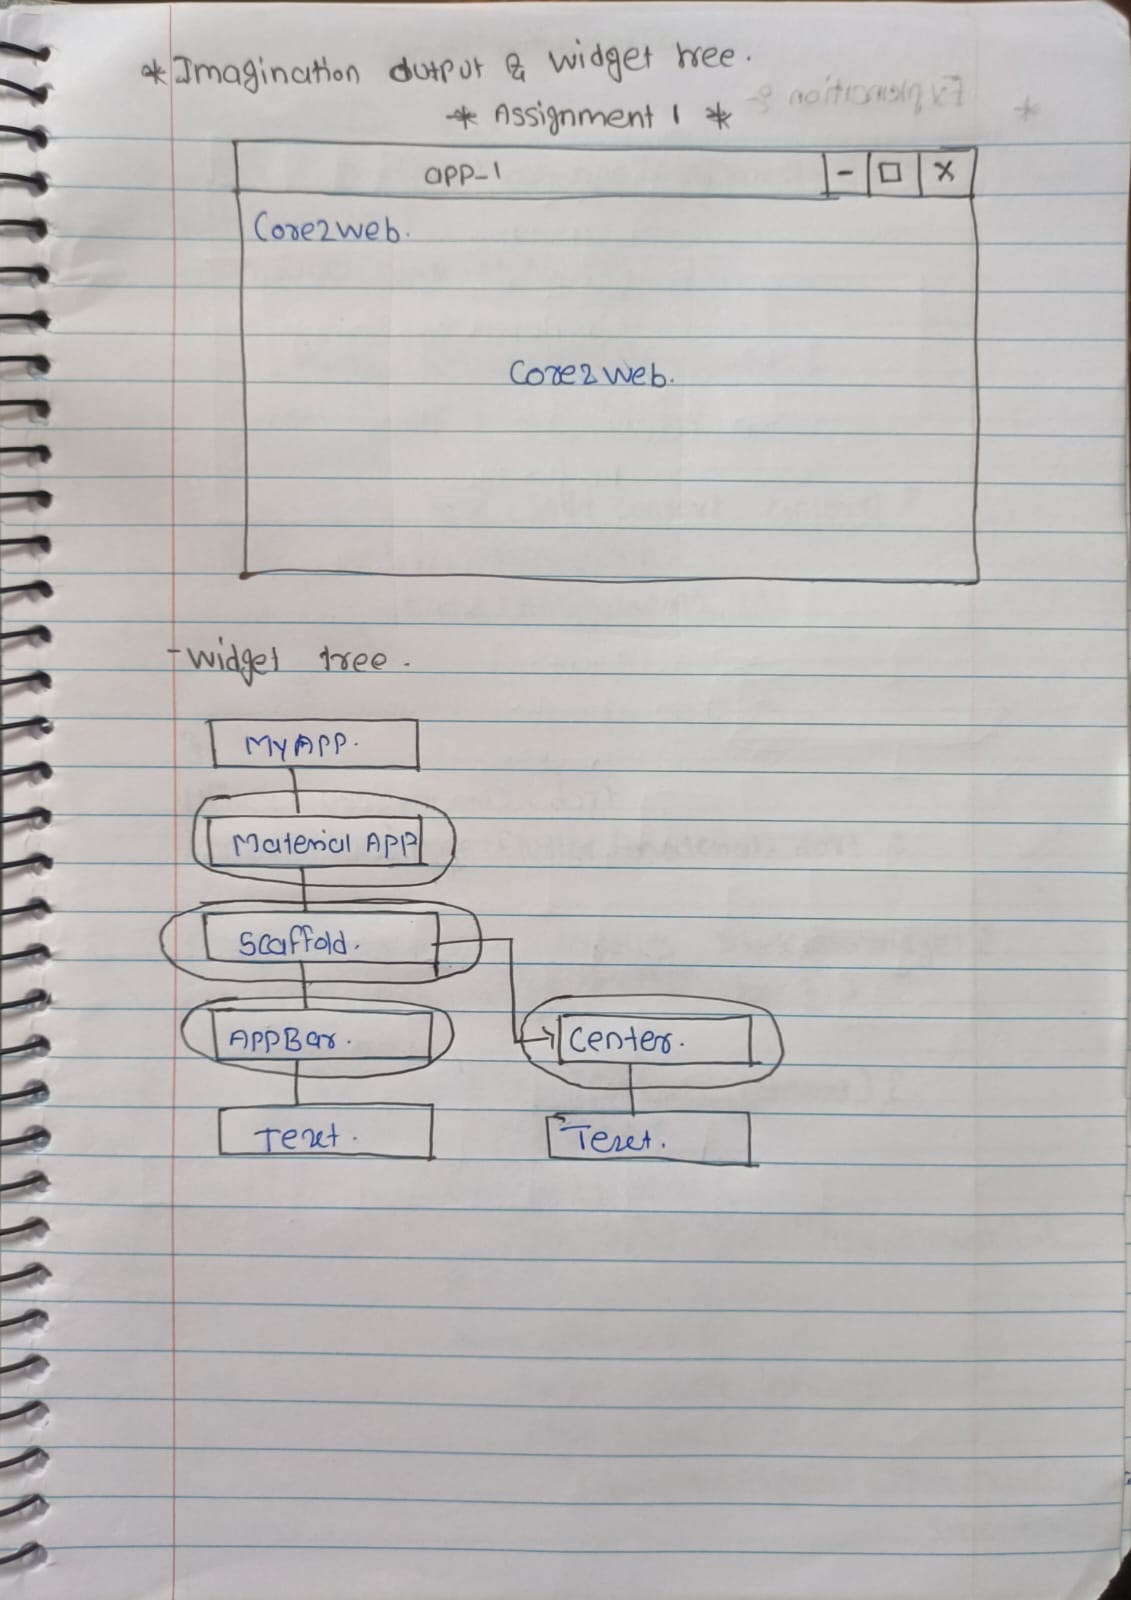 * Imagination output & widget tree.
* Assignment 1 *
app_1 - □ X
Core2web.
Core2web.
- widget tree.
MyApp.
Material App
Scaffold.
AppBar.
Center.
Text.
Text.